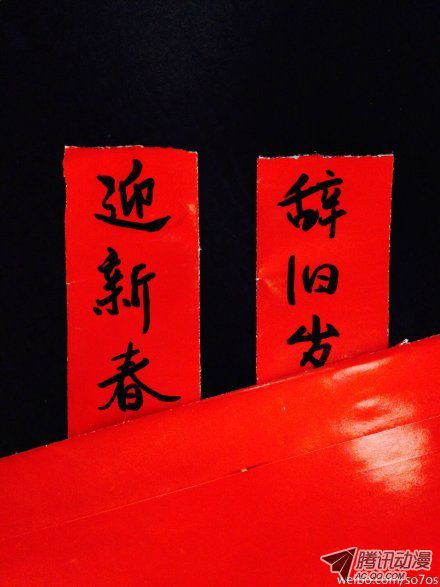 辞旧岁
迎新春
weibo.com/so7os
腾讯动漫
AC.QQ.COM